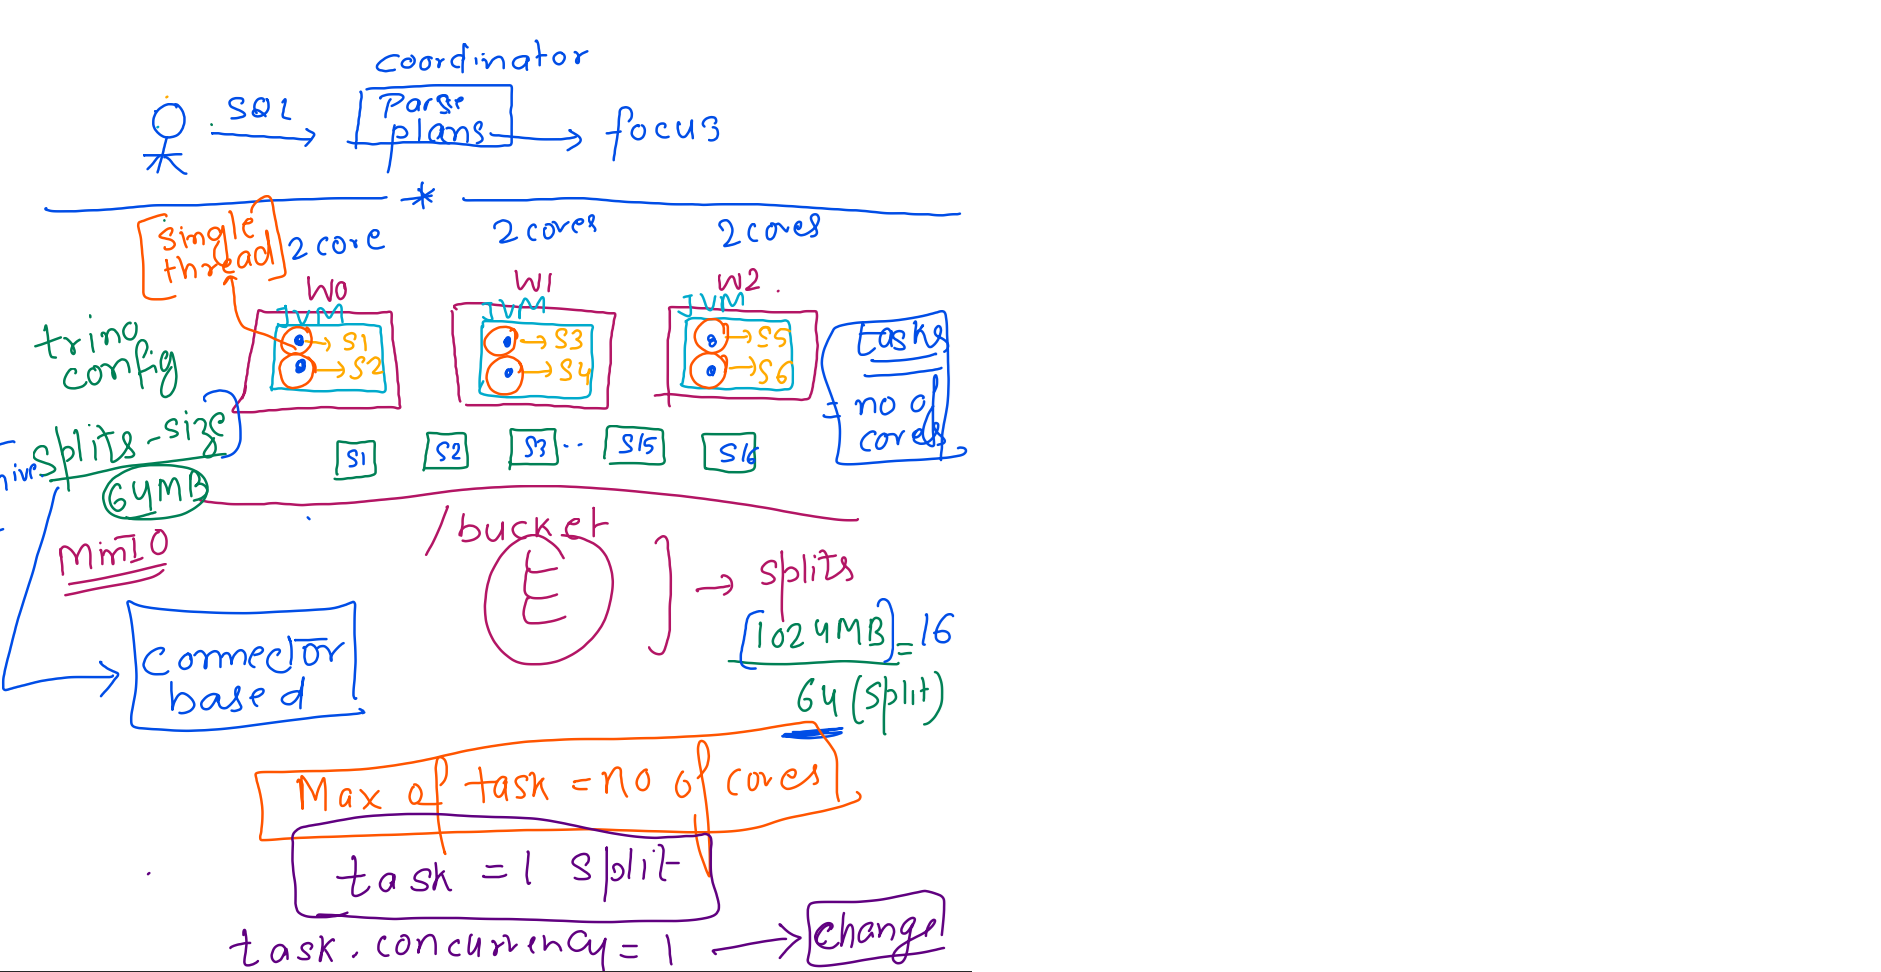 coordinator
SQL
Parse
plans
focus
single
thread
2 core
2 cores
2 cores
W0
W1
W2
JVM
JVM
JVM
S1
S2
S3
S4
S5
S6
trino
config
tasks
= no of
cores
hive splits-size
64MB
S1
S2
S3
..
S15
S16
MinIO
/bucket
splits
1024MB = 16
64 (split)
connector
based
Max of task = no of cores
task = 1 split
task.concurrency = 1
change